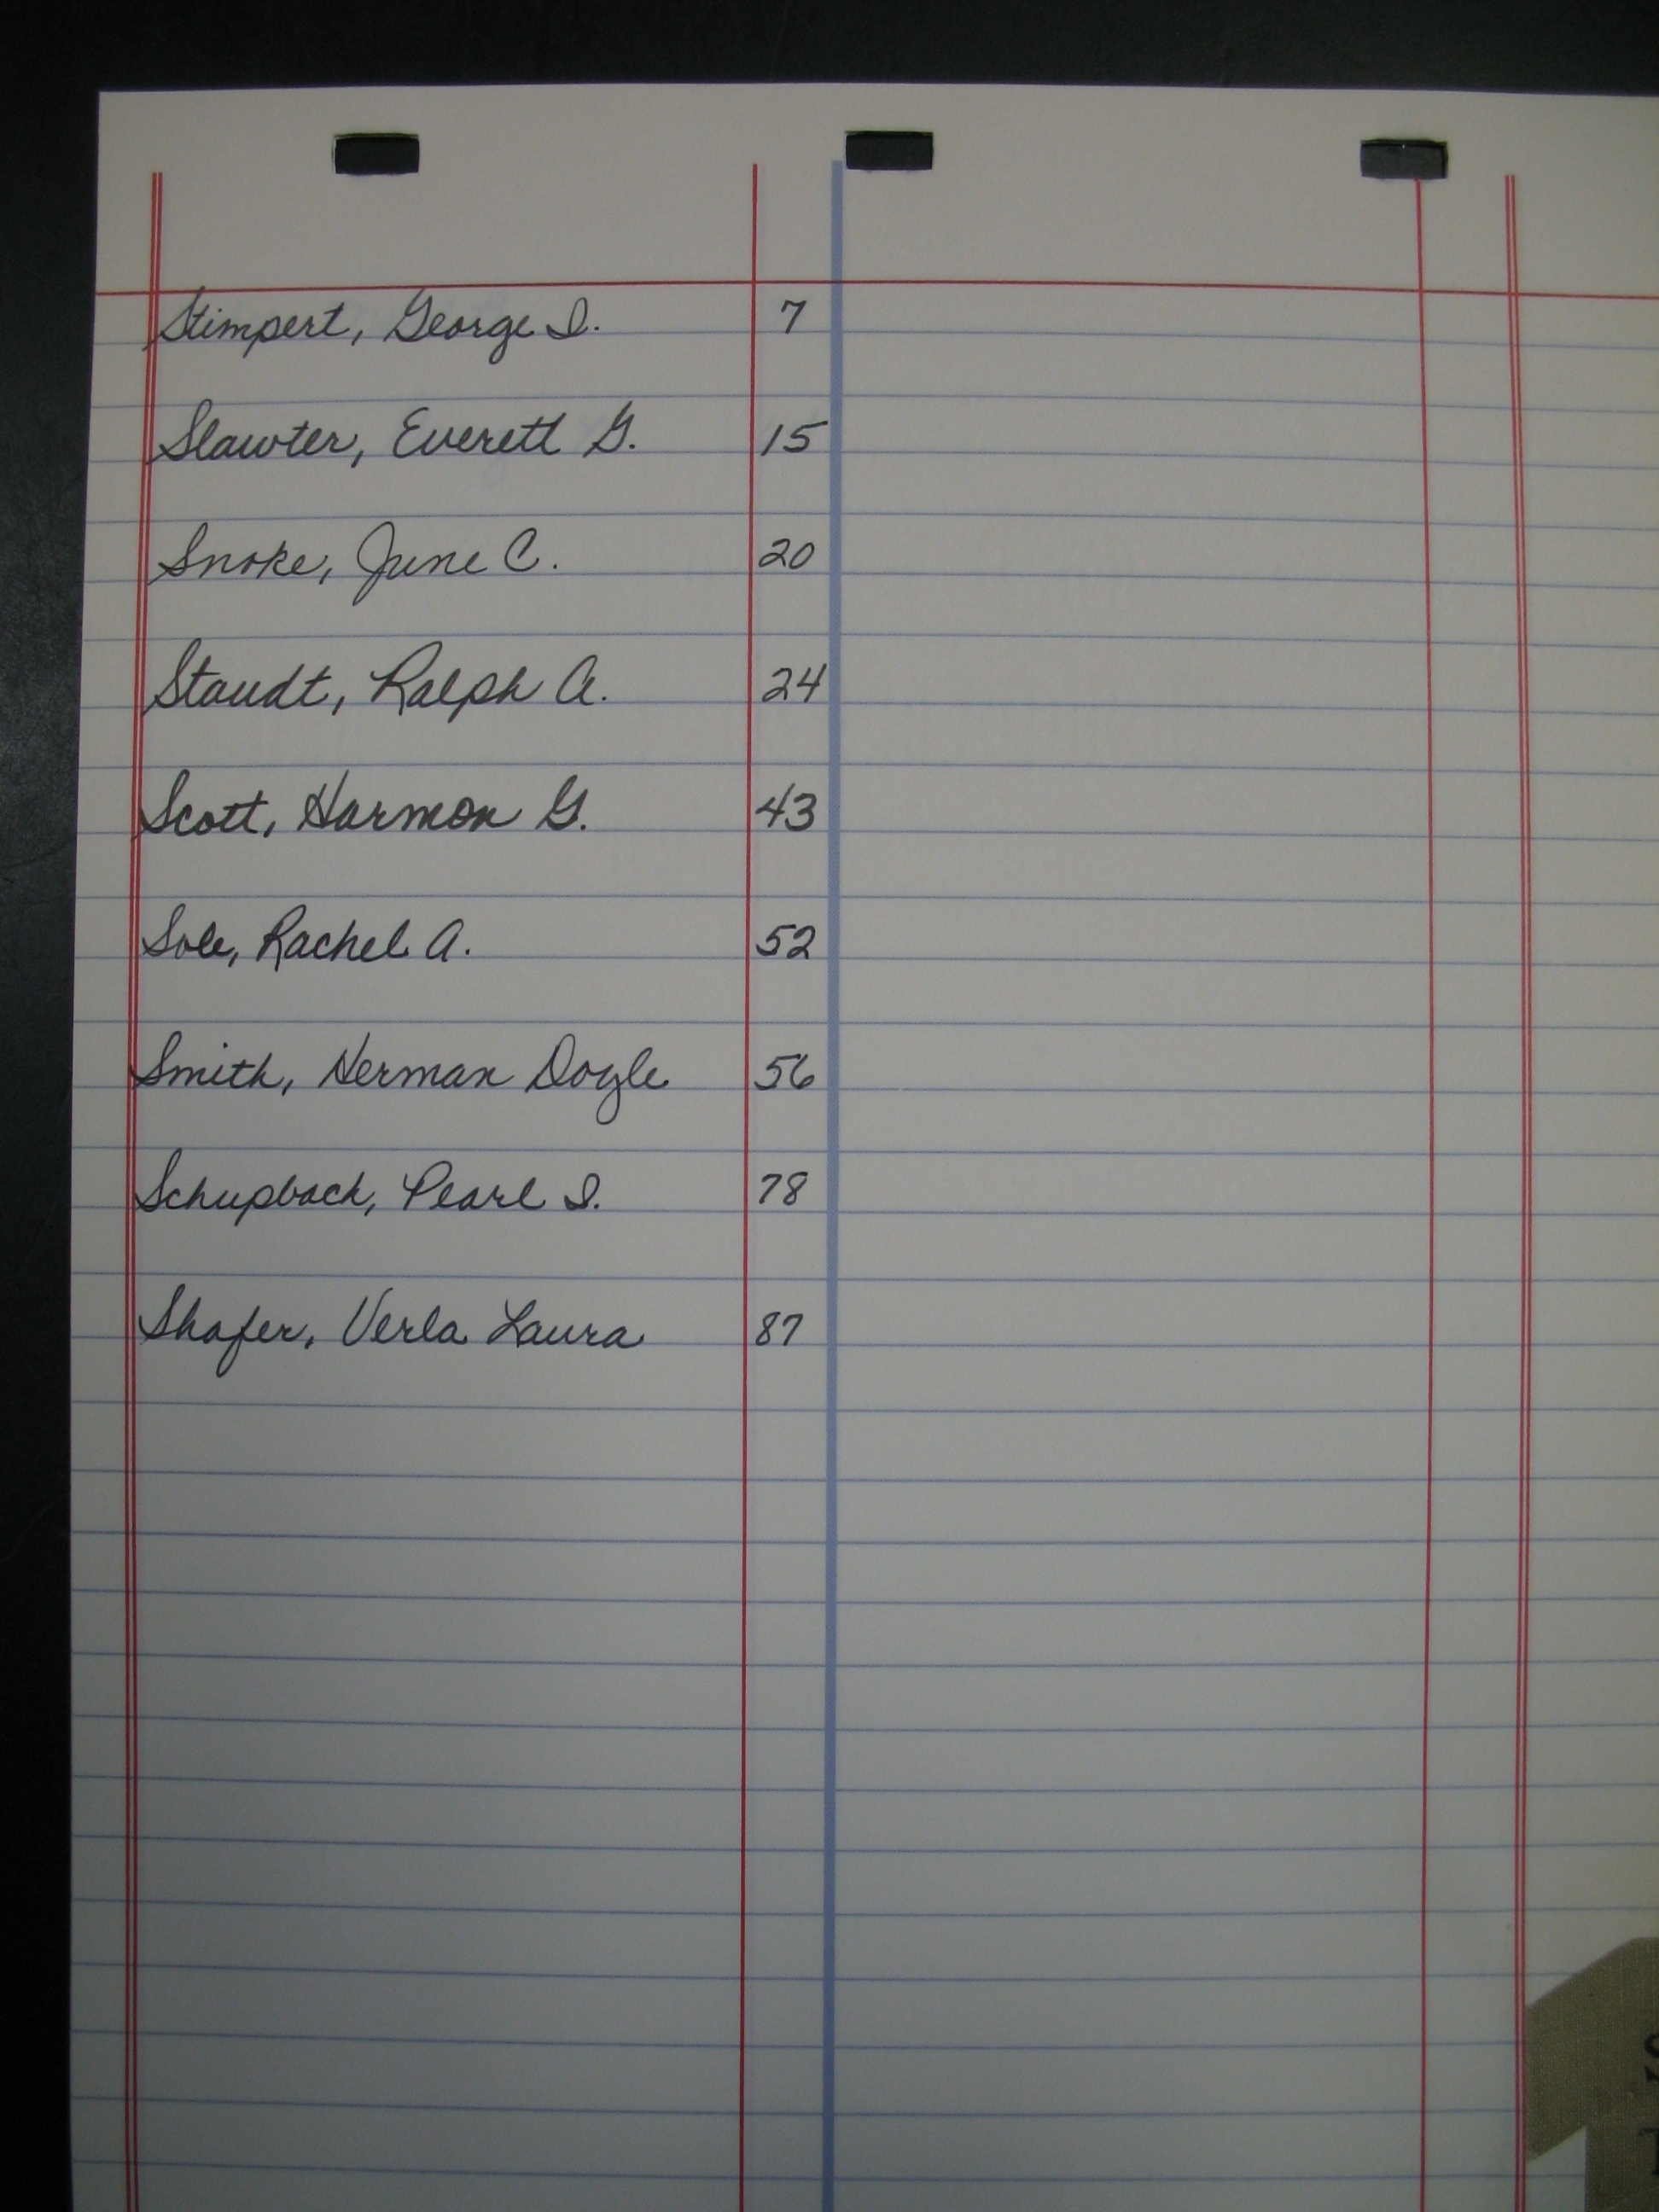 Stimpert, George I. 7
Slawter, Everett G. 15
Snoke, June C. 20
Staudt, Ralph A. 24
Scott, Harmon G. 43
Sole, Rachel A. 52
Smith, Herman Doyle 56
Schupbach, Pearl I. 78
Shafer, Verla Laura 87